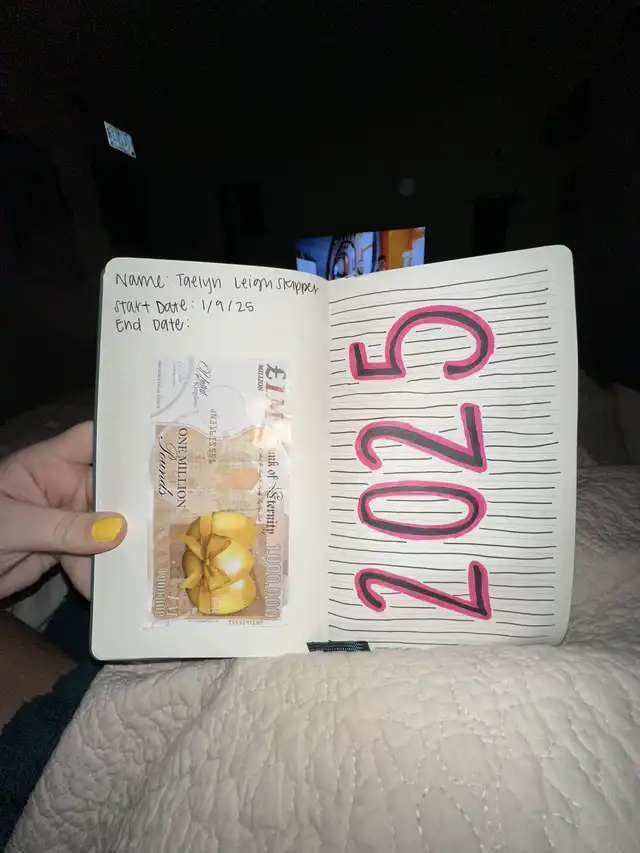 Name: Taelyn Leigh Skipper
Start Date: 1/9/25
End Date:
£1M
MILLION
Bank of Eternity
ONE MILLION
Pounds
1,000,000
2025